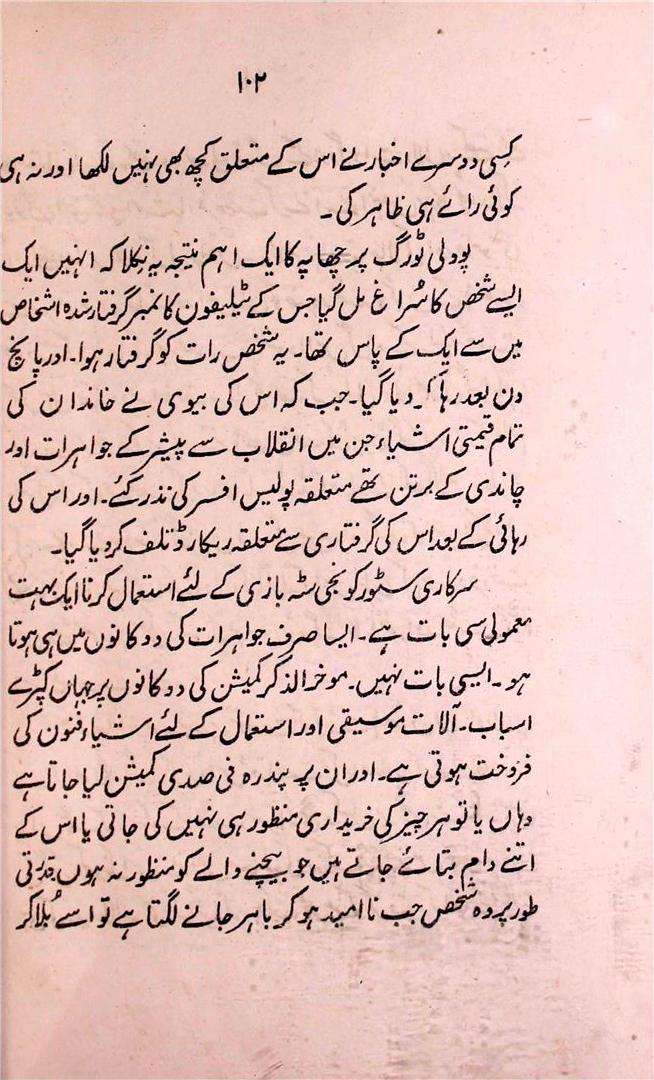 ۱۰۲
کسی دوسرے اخبار نے اس کے متعلق کچھ بھی نہیں لکھا اور نہ ہی
کوئی رائے ہی ظاہر کی۔
پودلی ٹورگ پر چھاپہ کا ایک اہم نتیجہ یہ نکلا کہ انہیں ایک
ایسے شخص کا سُراغ مل گیا جس کے ٹیلیفون کا نمبر گرفتار شدہ اشخاص
میں سے ایک کے پاس تھا۔ یہ شخص رات کو گرفتار ہوا۔ اور پانچ
دن بعد رہا دیا گیا۔ جب کہ اس کی بیوی نے خاندان کی
تمام قیمتی اشیاء جن میں انقلاب سے پیشر کے جواہرات اور
چاندی کے برتن تھے متعلقہ پولیس افسر کی نذر کئے۔ اور اس کی
رہائی کے بعد اس کی گرفتاری سے متعلقہ ریکارڈ تلف کر دیا گیا۔
سرکاری سٹور کو نجی سٹہ بازی کے لئے استعمال کرنا ایک بہت
معمولی سی بات ہے۔ ایسا صرف جواہرات کی دوکانوں میں ہی ہوتا
ہو۔ ایسی بات نہیں۔ موخرالذکر کمیشن کی دوکانوں پر جہاں کپڑے
اسباب۔ آلات موسیقی اور استعمال کے لئے اشیاء فنون کی
فروخت ہوتی ہے۔ اور ان پر پندرہ فی صدی کمیشن لیا جاتا ہے
وہاں یا تو ہر چیز کی خریداری منظور ہی نہیں کی جاتی یا اس کے
اتنے دام بتائے جاتے ہیں جو بیچنے والے کو منظور نہ ہوں قدرتی
طور پر وہ شخص جب نا امید ہو کر باہر جانے لگتا ہے تو اسے بُلا کر